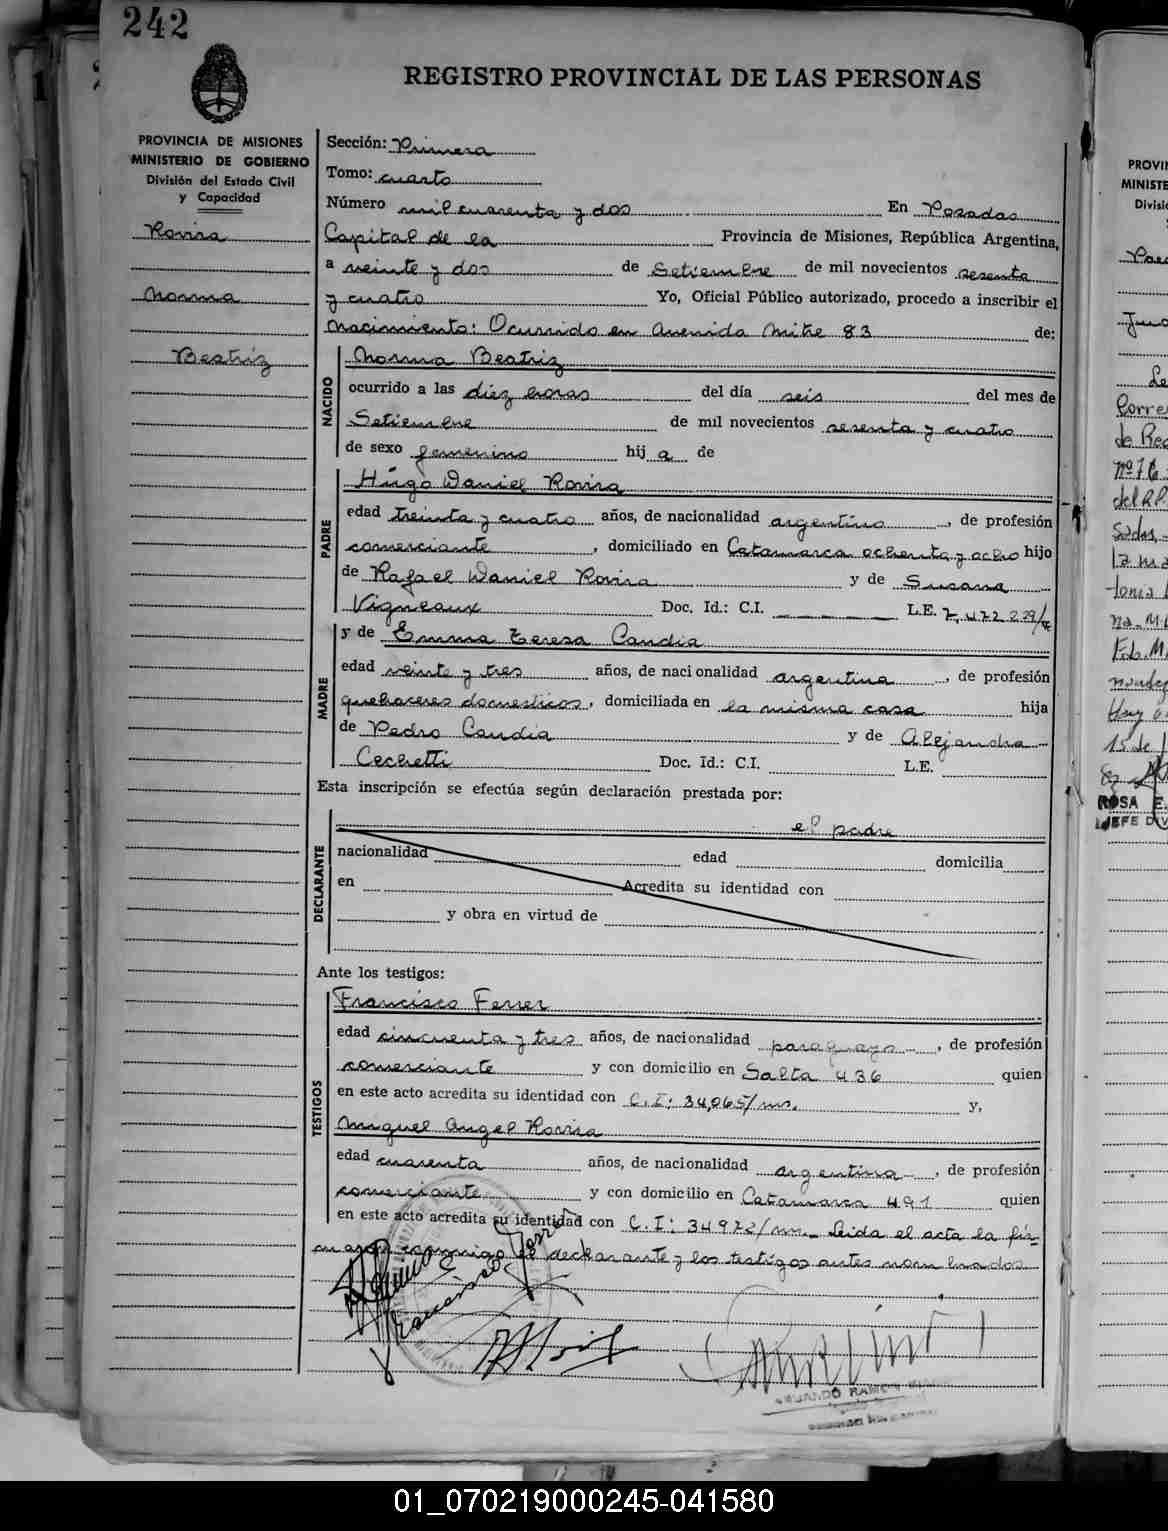 242
REGISTRO PROVINCIAL DE LAS PERSONAS
PROVINCIA DE MISIONES
MINISTERIO DE GOBIERNO
División del Estado Civil
y Capacidad
Rovira
Norma
Beatriz
Sección: Primera
Tomo: cuarto
Número mil cuarenta y dos En Posadas
Capital de la Provincia de Misiones, República Argentina,
a veinte y dos de Setiembre de mil novecientos sesenta
y cuatro Yo, Oficial Público autorizado, procedo a inscribir el
Nacimiento: Ocurrido en Avenida Mitre 83 de:
NACIDO
Norma Beatriz
ocurrido a las diez horas del día seis del mes de
Setiembre de mil novecientos sesenta y cuatro
de sexo femenino hij a de
PADRE
Hugo Daniel Rovira
edad treinta y cuatro años, de nacionalidad argentino, de profesión
comerciante, domiciliado en Catamarca ochenta y ocho hijo
de Rafael Daniel Rovira y de Susana
Vigneaux Doc. Id.: C.I. L.E. 7,472 239/
MADRE
y de Emma Teresa Candia
edad veinte y tres años, de nacionalidad argentina, de profesión
quehaceres domesticos, domiciliada en la misma casa hija
de Pedro Candia y de Alejandra
Cechetti Doc. Id.: C.I. L.E.
Esta inscripción se efectúa según declaración prestada por:
DECLARANTE
el padre
nacionalidad edad domicilia
en Acredita su identidad con
y obra en virtud de
Ante los testigos:
TESTIGOS
Francisco Ferrer
edad cincuenta y tres años, de nacionalidad paraguayo, de profesión
comerciante y con domicilio en Salta 436 quien
en este acto acredita su identidad con C.I: 34,065/ms. y,
Miguel Angel Rovira
edad cuarenta años, de nacionalidad argentina, de profesión
comerciante y con domicilio en Catamarca 491 quien
en este acto acredita su identidad con C.I: 34972/ms. Leida el acta la fir-
man conmigo el declarante y los testigos antes nombrados
Francisco Ferrer
PROVIN
MINISTE
Divisi
ROSA E.
JEFE DIV
01_070219000245-041580